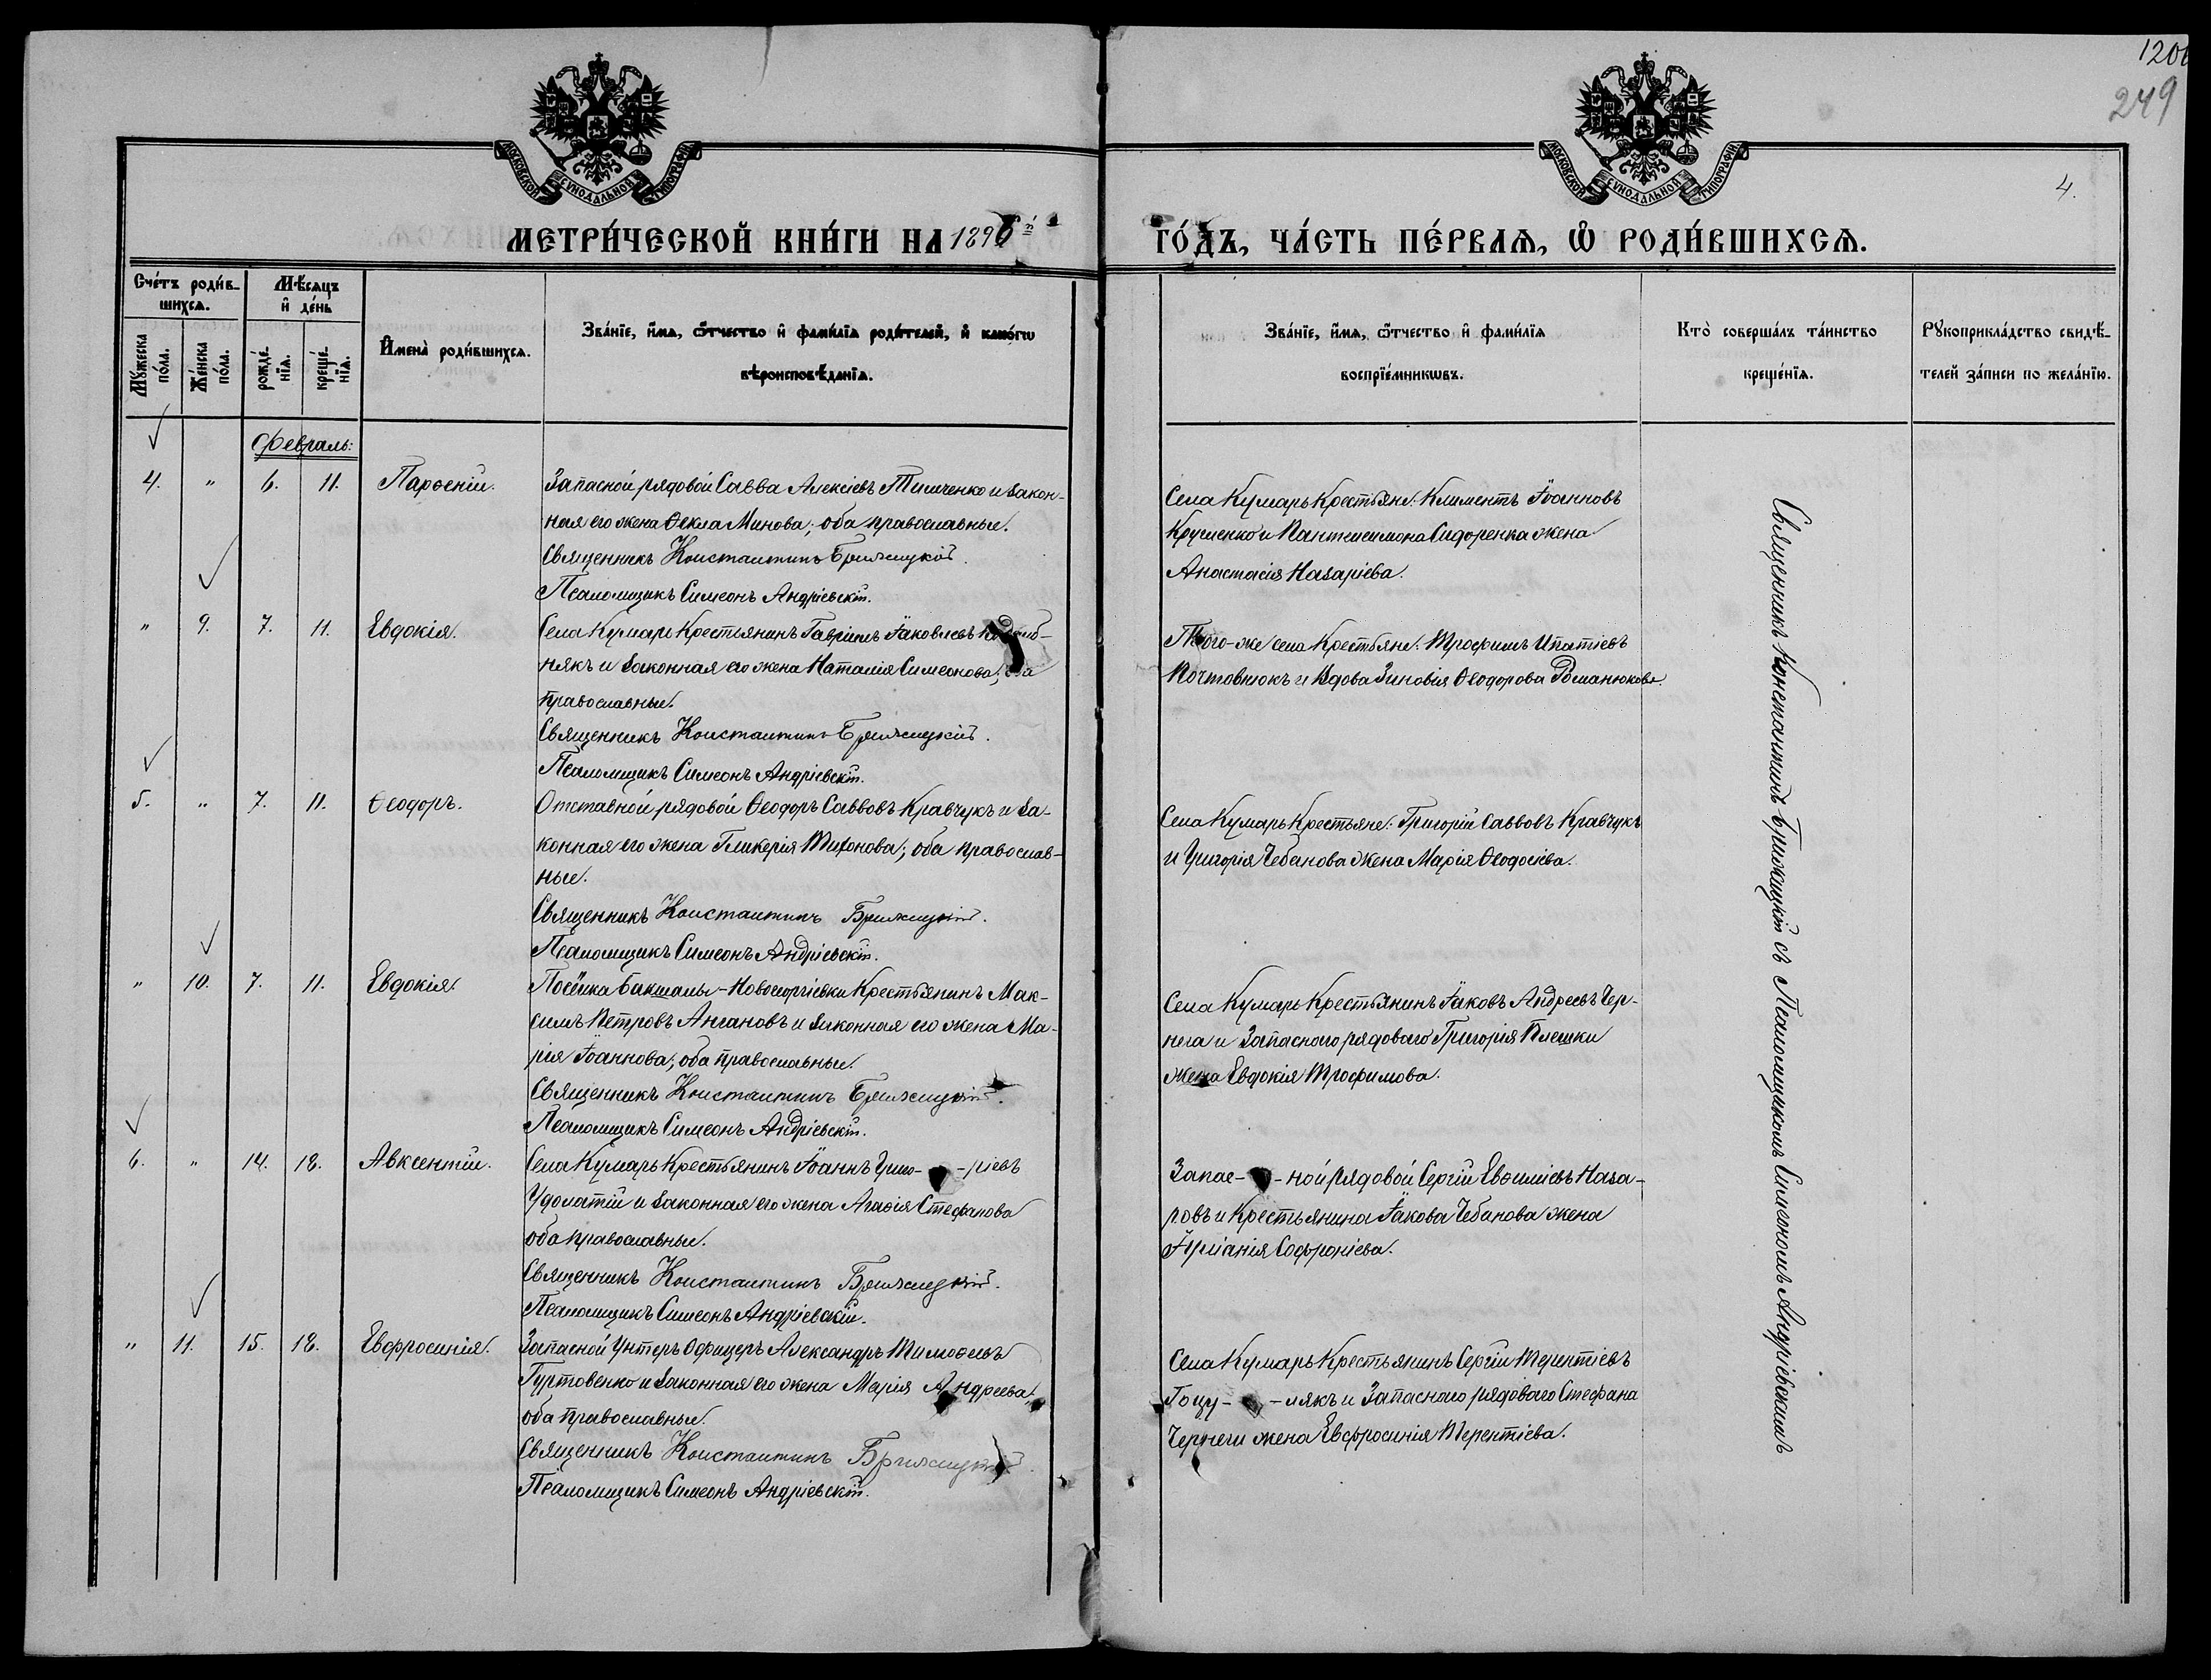 120
249
МОСКОВСКОЙ СѴНОДАЛЬНОЙ ТИПОГРАФІИ
МОСКОВСКОЙ СѴНОДАЛЬНОЙ ТИПОГРАФІИ
4.
МЕТРИ́ЧЕСКОЙ КНИ́ГИ НА 1896й
ГО́ДЪ, ЧА́СТЬ ПЕ́РВАѦ, Ѡ҆ РОДИ́ВШИХСѦ.
Сче́тъ роди́в-
шихсѧ.
Мѣ́сѧцъ
и҆ де́нь
Мꙋ́жеска
по́ла.
Же́нска
по́ла.
рожде́-
нїѧ.
креще́-
нїѧ.
И҆мена̀ роди́вшихсѧ.
Зва́нїе, и҆́мѧ, ѻ҆́тчество и҆ фами́лїѧ роди́телей, и҆ како́гѡ
вѣроисповѣ́данїѧ.
Зва́нїе, и҆́мѧ, ѻ҆́тчество и҆ фами́лїѧ
воспрїе́мникѡвъ.
Кто̀ соверша́лъ та́инство
креще́нїѧ.
Рꙋкоприкла́дство свидѣ́-
телей за́писи по жела́нїю.
Февраль:
4. " 6. 11. Парѳеній. Запасной рядовой Савва Алексіевъ Тимченко и закон-
ная его жена Ѳекла Минова; оба православные.
Священникъ Константинъ Брижицкій.
Псаломщикъ Симеонъ Андріевскій.
Села Кумарь Крестьяне: Климентъ Іоанновъ
и Пантелеимона Сидоренка жена
Анастасія Назаріева.
" 9. 7. 11. Евдокія. Села Кумары Крестьянинъ Гавріилъ Іаковлевъ
някъ и законная его жена Наталія Симеонова; оба
православные.
Священникъ Константинъ Брижицкій.
Псаломщикъ Симеонъ Андріевскій.
Того-же села Крестьяне: Трофимъ Ипатіевъ
Почтовнюкъ и Вдова Зиновія Ѳеодорова Романюкова.
5. " 7. 11. Ѳеодоръ. Отставной рядовой Ѳеодоръ Саввовъ Кравчукъ и за-
конная его жена Гликерія Тихонова; оба православ-
ные.
Священникъ Константинъ Брижицкій.
Псаломщикъ Симеонъ Андріевскій.
Села Кумарь Крестьяне: Григорій Саввовъ Кравчукъ
и Григорія Чебанова жена Марія Ѳеодосіева.
" 10. 7. 11. Евдокія. Посёлка Бакшалы-Новогеоргіевки Крестьянинъ Мак-
симъ Петровъ Ангановъ и законная его жена Ма-
рія Іоаннова; оба православные.
Священникъ Константинъ Брижицкій.
Псаломщикъ Симеонъ Андріевскій.
Села Кумарь Крестьянинъ Іаковъ Андреевъ Чер-
нега и Запасного рядового Григорія Плешки
жена Евдокія Трофимова.
6. " 14. 18. Авксентій. Села Кумарь Крестьянинъ Іоаннъ Григо- -ріевъ
Удолатій и законная его жена Агаѳія Стефанова
оба православные.
Священникъ Константинъ Брижицкій.
Псаломщикъ Симеонъ Андріевскій.
Запас- -ной рядовой Сергій Евѳиміевъ Наза-
ровъ и Крестьянина Іакова Чебанова жена
Іуліанія Софроніева.
" 11. 15. 18. Евфросинія. Запасной Унтеръ Офицеръ Александръ Тимоѳеевъ
Гуртовенко и законная его жена Марія Андреева,
оба православные.
Священникъ Константинъ Брижицкій.
Псаломщикъ Симеонъ Андріевскій.
Села Кумарь Крестьянинъ Сергій Терентіевъ
Гоцу- -лякъ и Запасного рядового Стефана
Чернеги жена Евфросинія Терентіева.
Священникъ Константинъ Брижицкій съ Псаломщикомъ Симеономъ Андріевскимъ